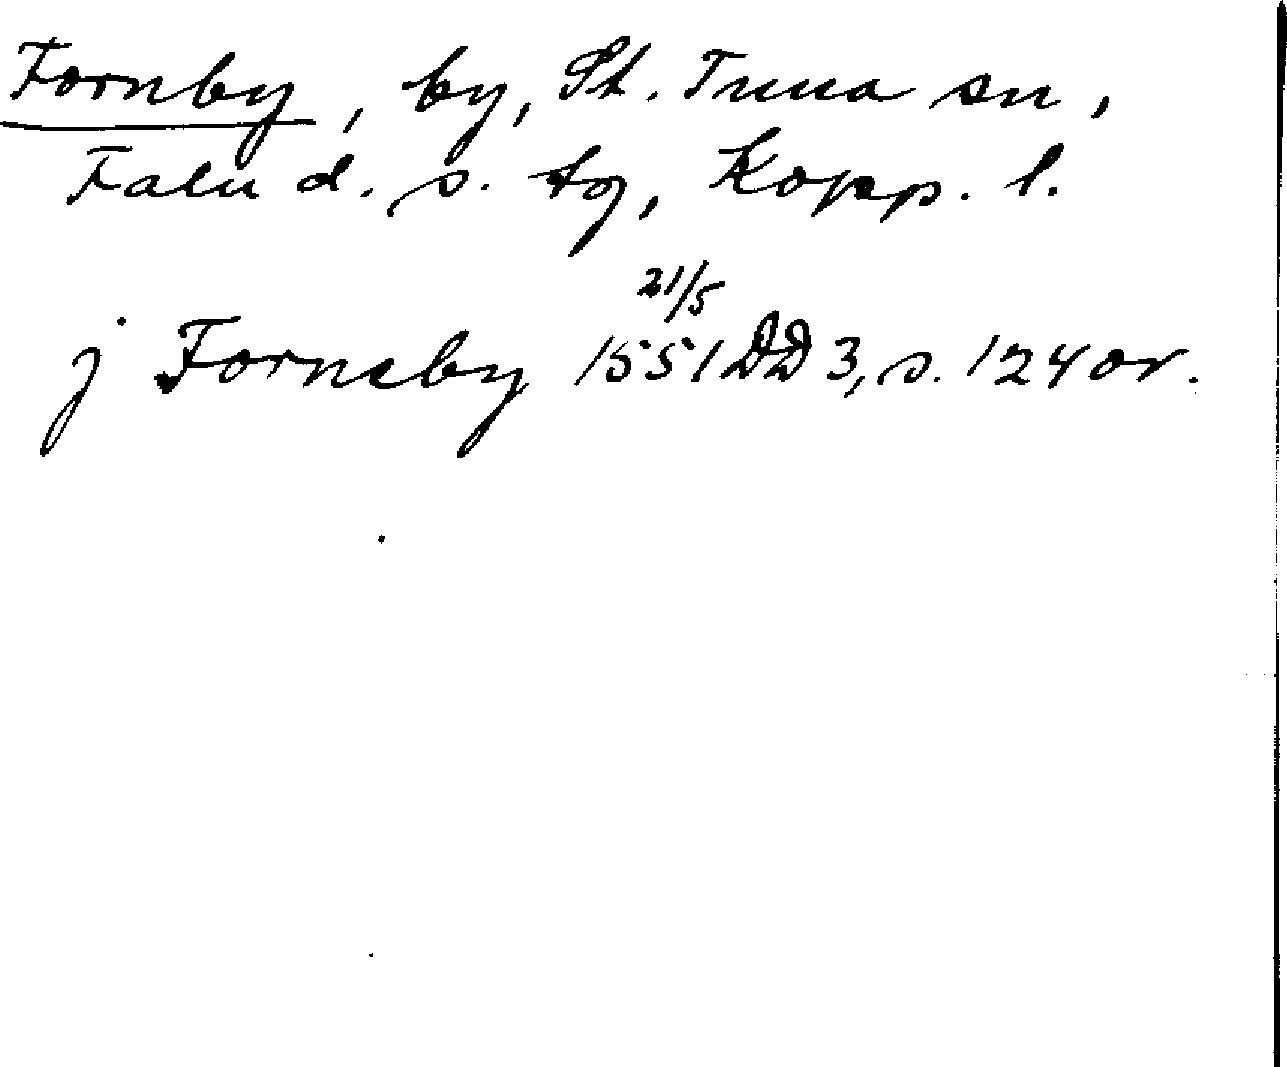 Fornby, by, St. Tuna sn,
Falu d. s. tg, Kopp. l.
21/5
j Forneby 1551 DD 3, s. 124 or.